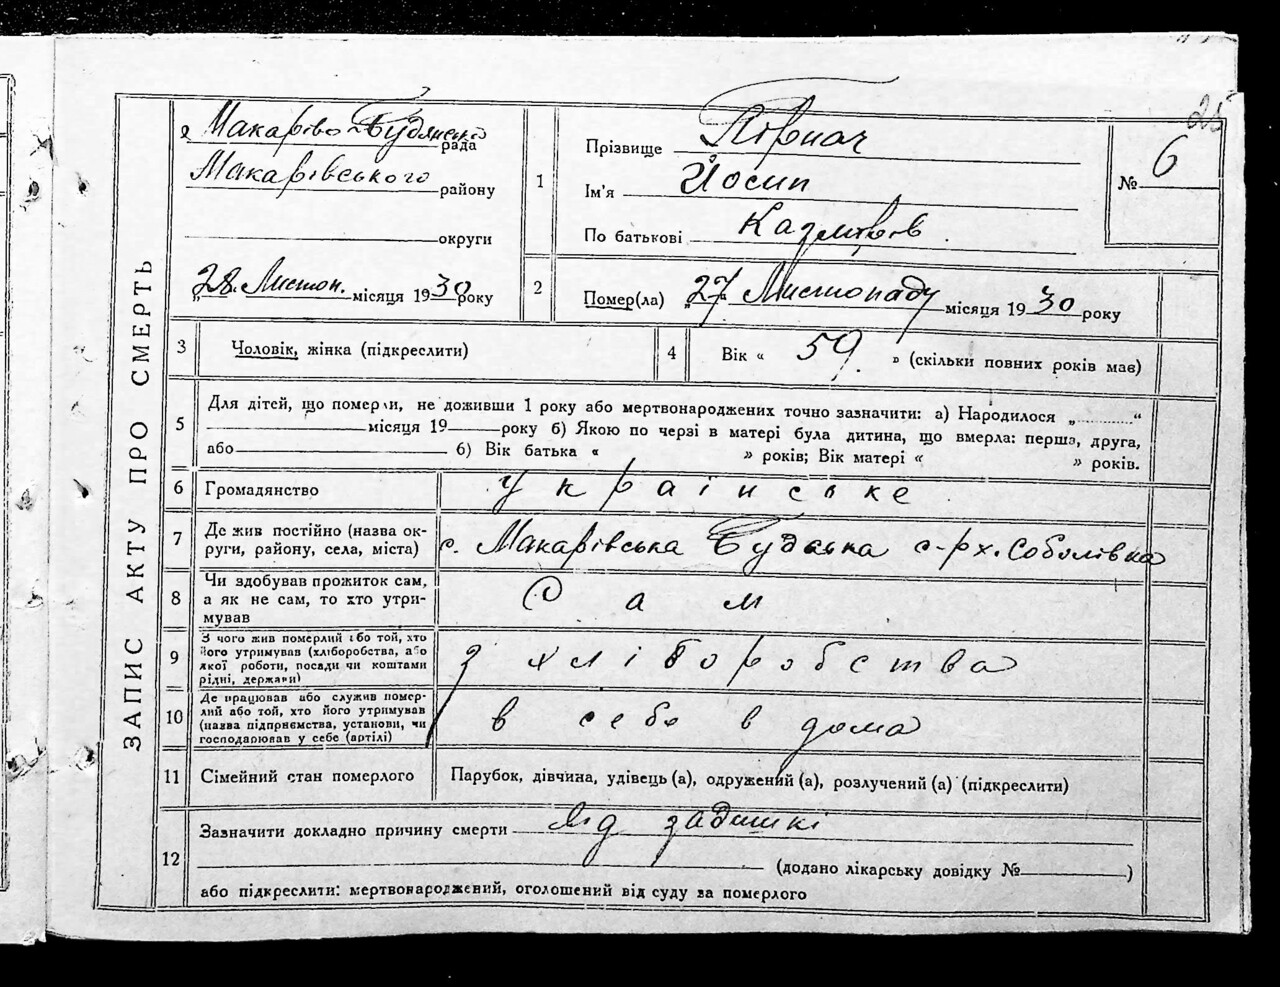 25
ЗАПИС АКТУ ПРО СМЕРТЬ
Макарово-Будянська рада
Макарівського району
округи
„28„ Листоп. місяця 1930 року
1
Прізвище Півнач
Ім'я Йосип
По батькові
№ 6
2
Помер(ла) „27„ Листопаду місяця 1930 року
3 Чоловік, жінка (підкреслити)
4 Вік « 59. » (скільки повних років мав)
5
Для дітей, що померли, не доживши 1 року або мертвонароджених точно зазначити: а) Народилося „ “
місяця 19 року б) Якою по черзі в матері була дитина, що вмерла: перша, друга,
або б) Вік батька « » років; Вік матері « » років.
6 Громадянство українське
7
Де жив постійно (назва ок-
руги, району, села, міста)
с. Макарівська Буда с-р х. Соболівка
8
Чи здобував прожиток сам,
а як не сам, то хто утри-
мував
Сам
9
З чого жив померлий або той, хто
його утримував (хліборобства, або
якої роботи, посади чи коштами
рідні, держави)
з хліборобства
10
Де працював або служив помер-
лий або той, хто його утримував
(назва підприємства, установи, чи
господарював у себе (артілі)
в себе в дома
11 Сімейний стан померлого Парубок, дівчина, удівець (а), одружений (а), розлучений (а) (підкреслити)
12
Зазначити докладно причину смерти від задишкі
(додано лікарську довідку № )
або підкреслити: мертвонароджений, оголошений від суду за померлого